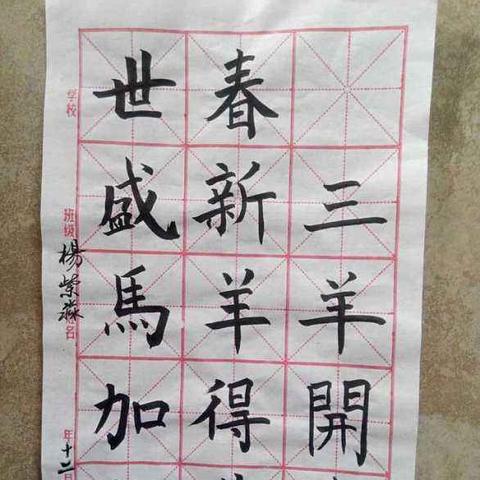 三羊開
春新羊得
世盛馬加
学校
班级
楊紫
名
年
十二